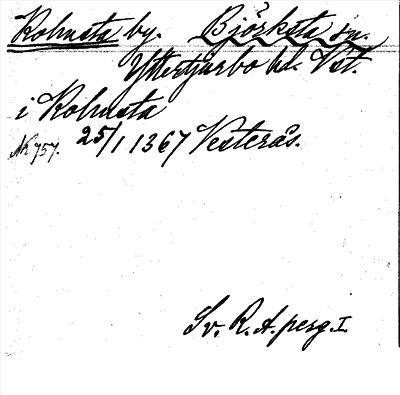 Kohusta by. Björksta sn.
Yttertjurbo hd. Vst.
i Kohusta
Nr 757. 25/1 1367 Vesterås.
Sv. R. A. perg. I.